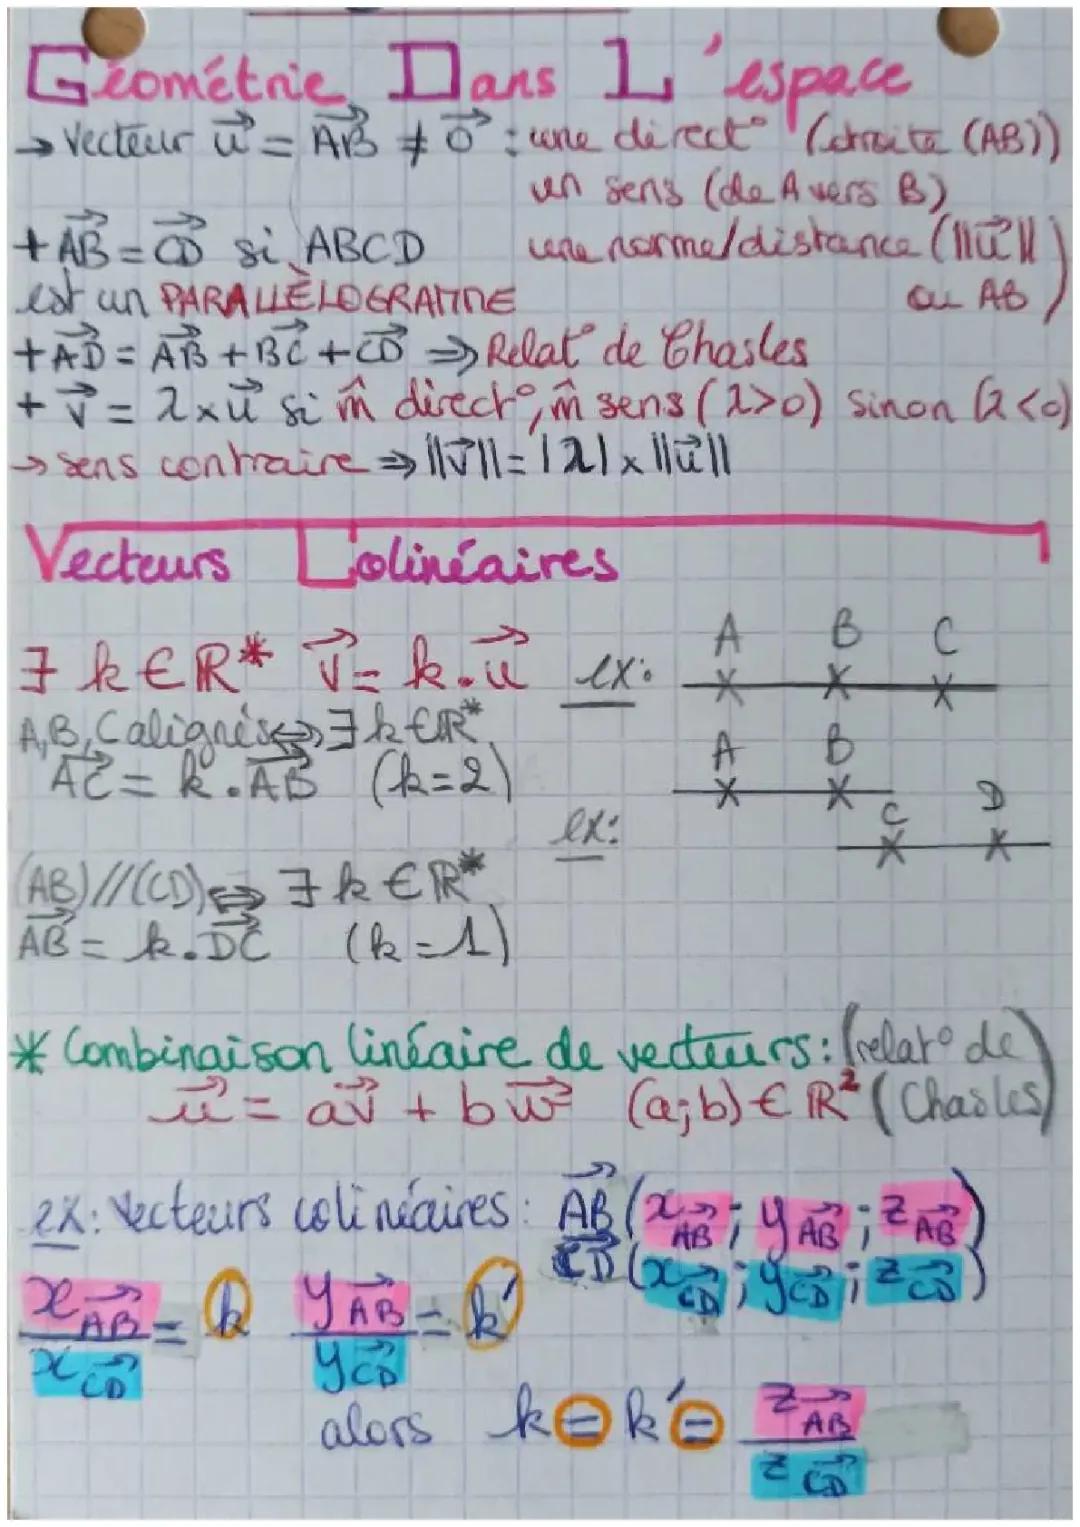 Géométrie Dans L'espace
→ Vecteur u⃗ = AB⃗ ≠ 0⃗ : une direct° (droite (AB))
un sens (de A vers B)
+ AB⃗ = CD⃗ si ABCD une norme/distance (||u⃗||
est un PARALLÈLOGRAMME ou AB)
+ AD⃗ = AB⃗ + BC⃗ + CD⃗ ⇒ Relat° de Chasles
+ v⃗ = λ × u⃗ si m̂ direct°, m̂ sens (λ>0) sinon (λ<0)
→ sens contraire ⇒ ||v⃗|| = |λ| × ||u⃗||
Vecteurs Colinéaires
∃ k ∈ ℝ* v⃗ = k.u⃗ ex: A B C
A, B, C alignés ⇔ ∃ k ∈ ℝ*
AC⃗ = k.AB⃗ (k=2) A B
ex: C D
(AB)//(CD) ⇔ ∃ k ∈ ℝ*
AB⃗ = k.DC⃗ (k=1)
* Combinaison linéaire de vecteurs: (relat° de
u⃗ = av⃗ + bw⃗ (a;b) ∈ ℝ² Chasles)
ex: Vecteurs colinéaires: AB⃗ (x AB⃗ ; y AB⃗ ; z AB⃗)
CD⃗ (x CD⃗ ; y CD⃗ ; z CD⃗)
x AB⃗ / x CD⃗ = k y AB⃗ / y CD⃗ = k'
alors k = k' = z AB⃗ / z CD⃗